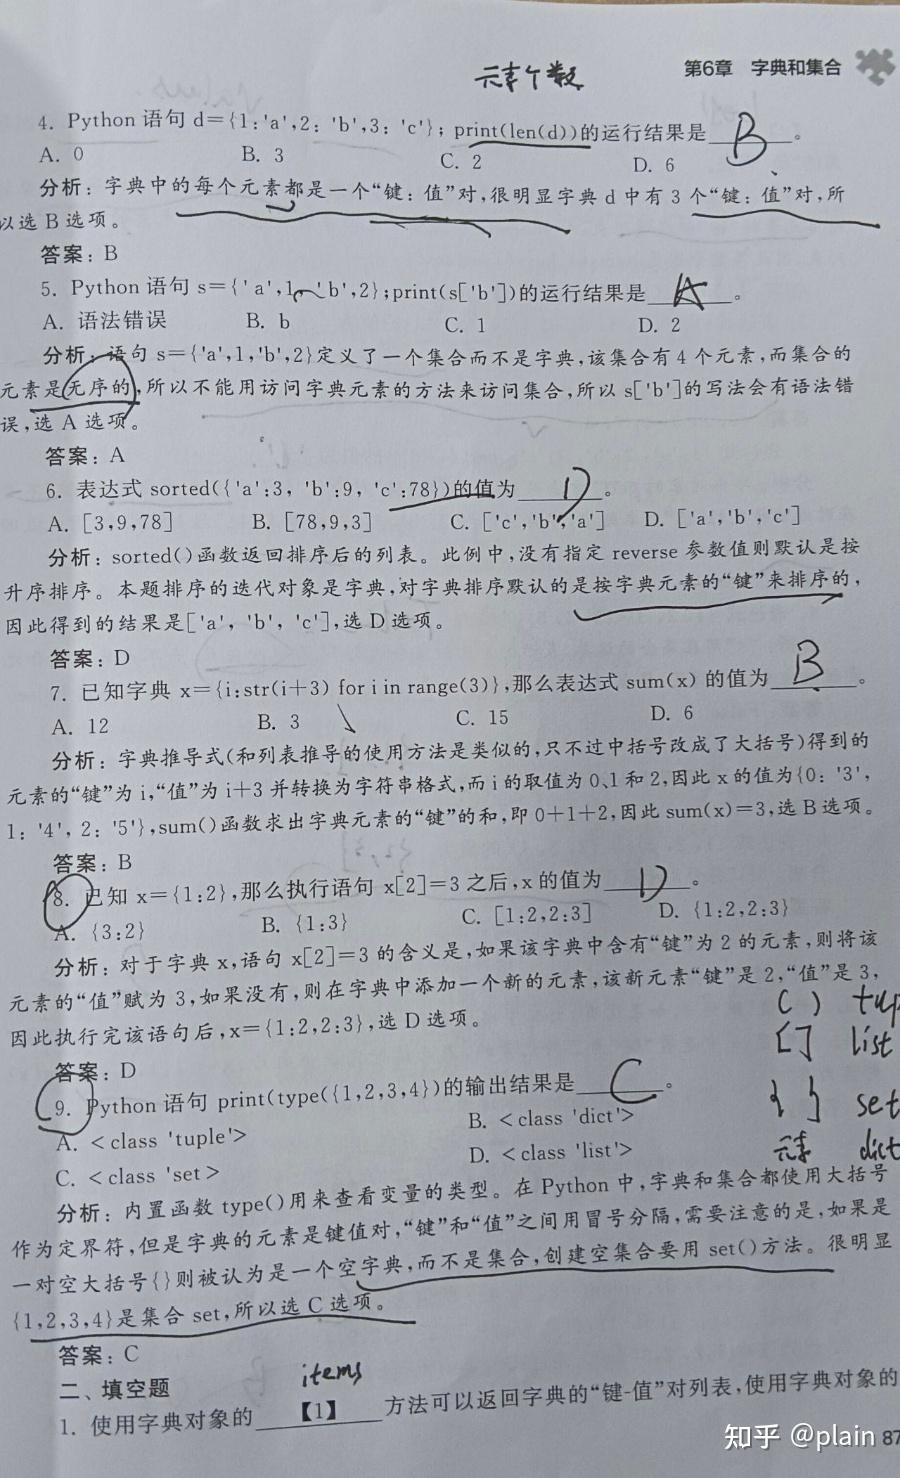 元素个数
第6章 字典和集合
4. Python 语句 d={1:'a',2: 'b',3: 'c'}; print(len(d))的运行结果是 B 。
A. 0 B. 3 C. 2 D. 6
分析：字典中的每个元素都是一个“键：值”对,很明显字典 d 中有 3 个“键：值”对,所
以选 B 选项。
答案：B
5. Python 语句 s={'a',1,'b',2};print(s['b'])的运行结果是 A 。
A. 语法错误 B. b C. 1 D. 2
分析：语句 s={'a',1,'b',2}定义了一个集合而不是字典,该集合有 4 个元素,而集合的
元素是无序的,所以不能用访问字典元素的方法来访问集合,所以 s['b']的写法会有语法错
误,选 A 选项。
答案：A
6. 表达式 sorted({'a':3, 'b':9, 'c':78})的值为 D 。
A. [3,9,78] B. [78,9,3] C. ['c','b','a'] D. ['a','b','c']
分析：sorted()函数返回排序后的列表。此例中,没有指定 reverse 参数值则默认是按
升序排序。本题排序的迭代对象是字典,对字典排序默认的是按字典元素的“键”来排序的,
因此得到的结果是['a', 'b', 'c'],选 D 选项。
答案：D
7. 已知字典 x={i:str(i+3) for i in range(3)},那么表达式 sum(x) 的值为 B 。
A. 12 B. 3 C. 15 D. 6
分析：字典推导式(和列表推导的使用方法是类似的,只不过中括号改成了大括号)得到的
元素的“键”为 i,“值”为 i+3 并转换为字符串格式,而 i 的取值为 0、1 和 2,因此 x 的值为{0: '3',
1: '4', 2: '5'},sum()函数求出字典元素的“键”的和,即 0+1+2,因此 sum(x)=3,选 B 选项。
答案：B
8. 已知 x={1:2},那么执行语句 x[2]=3 之后,x 的值为 D 。
A. {3:2} B. {1:3} C. [1:2,2:3] D. {1:2,2:3}
分析：对于字典 x,语句 x[2]=3 的含义是,如果该字典中含有“键”为 2 的元素,则将该
元素的“值”赋为 3,如果没有,则在字典中添加一个新的元素,该新元素“键”是 2,“值”是 3,
因此执行完该语句后,x={1:2,2:3},选 D 选项。
( ) tup
[ ] list
答案：D
9. Python 语句 print(type({1,2,3,4})的输出结果是 C 。
{ } set
A. <class 'tuple'> B. <class 'dict'>
元素 dict
C. <class 'set> D. <class 'list'>
分析：内置函数 type()用来查看变量的类型。在 Python 中,字典和集合都使用大括号
作为定界符,但是字典的元素是键值对,“键”和“值”之间用冒号分隔,需要注意的是,如果是
一对空大括号{}则被认为是一个空字典,而不是集合,创建空集合要用 set()方法。很明显
{1,2,3,4}是集合 set,所以选 C 选项。
答案：C
二、填空题
items
1. 使用字典对象的 【1】 方法可以返回字典的“键-值”对列表,使用字典对象的
知乎 @plain
87